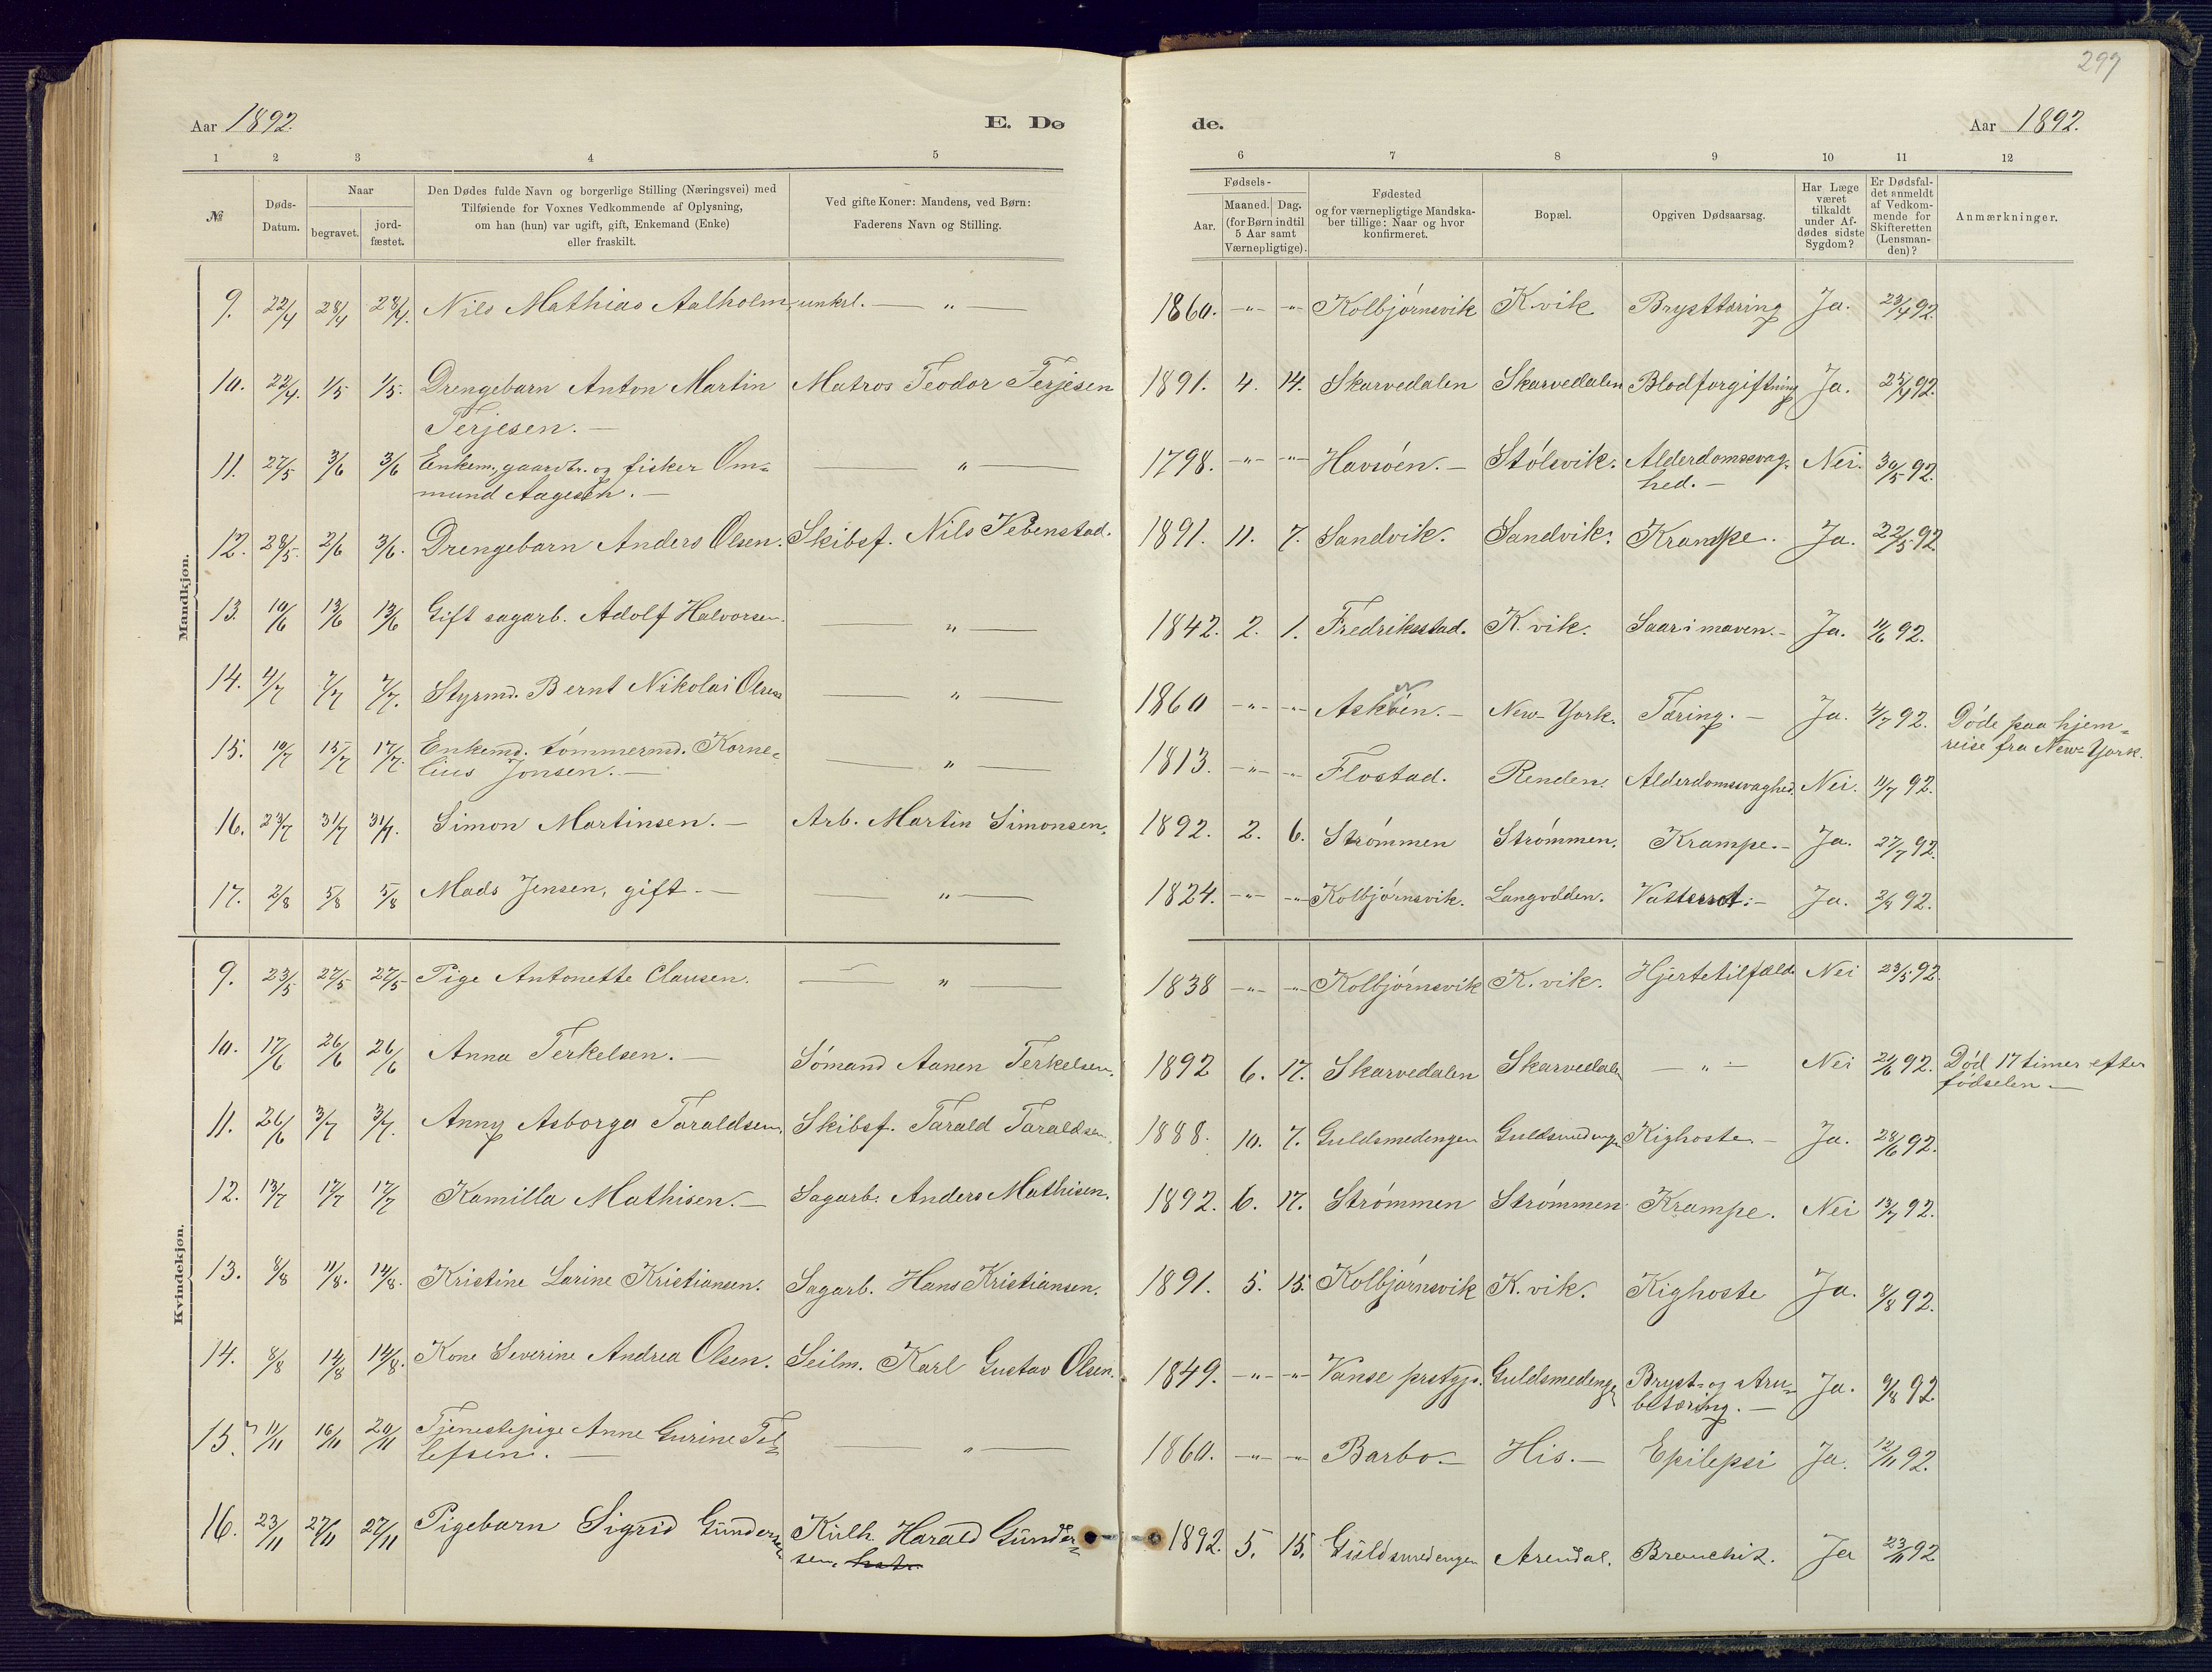 297
Aar 1892. E. Dø de. Aar 1892.
1 2 3 4 5 6 7 8 9 10 11 12
№
Døds-
Datum.
Naar
begravet.
jord-
fæstet.
Den Dødes fulde Navn og borgerlige Stilling (Næringsvei) med
Tilføiende for Voxnes Vedkommende af Oplysning,
om han (hun) var ugift, gift, Enkemand (Enke)
eller fraskilt.
Ved gifte Koner: Mandens, ved Børn:
Faderens Navn og Stilling.
Fødsels-
Aar.
Maaned. Dag.
(for Børn indtil
5 Aar samt
Værnepligtige).
Fødested
og for værnepligtige Mandska-
ber tillige: Naar og hvor
konfirmeret.
Bopæl.
Opgiven Dødsaarsag.
Har Læge
været
tilkaldt
under Af-
dødes sidste
Sygdom?
Er Dødsfal-
det anmeldt
af Vedkom-
mende for
Skifteretten
(Lensman-
den)?
Anmærkninger.
Mandkjøn.
9. 22/4 28/4 28/4. Nils Mathias Aalholm, unkrl. — " — 1860. -"- -"- Kolbjørnsvik K.vik Brysttæring Ja. 23/4 92.
10. 22/4. 1/5 1/5. Drengebarn Anton Martin Matros Teodor Terjesen 1891. 4. 14. Skarvedalen Skarvedalen Blodforgiftning Ja. 25/4 92.
Terjesen. —
11. 27/5 3/6 3/6 Enkem., gaardbr. og fisker Om= — " — 1798. -"- -"- Havsøen. — Stølsvik. Alderdomssvag- Nei. 30/5 92.
mund Aagesen. — hed. —
12. 28/5. 2/6 3/6. Drengebarn Anders Olsen. Skibsf. Nils Vebenstad. 1891. 11. 7. Sandvik. Sandvik. Krampe. Ja. 22/5 92.
13. 10/6 13/6 13/6 Gift sagarb. Adolf Halvorsen. — " — 1842. 2. 1. Fredriksstad. K.vik. Saar i maven. — Ja. 11/6 92.
14. 4/7 7/7 7/7. Styrmd. Bernt Nikolai Olsen — " — 1860 -"- -"- Askøen. — New-York. Tæring. — Ja. 4/7 92. Døde paa hjem=
reise fra New-York.
15. 10/7 15/7 17/7. Enkemd. tømmermd. Korne= — " — 1813. -"- -"- Flostad. Renden. Alderdomssvaghed. Nei. 11/7 92.
lius Jonsen. —
16. 23/7 31/7 31/7. Simon Martinsen. — Arb. Martin Simonsen. 1892. 2. 6. Strømmen Strømmen. Krampe. — Ja. 27/7 92.
17. 2/8 5/8 5/8 Mads Jensen, gift — — " — 1824. -"- -"- Kolbjørnsvik. Langodden. Vattersot. — Ja. 2/8 92.
Kvindekjøn.
9. 23/5 27/5 27/5 Pige Antonette Clausen. — " — 1838 -"- -"- Kolbjørnsvik K.vik. Hjertetilfælde Nei 23/5 92.
10. 17/6 26/6 26/6 Anna Terkelsen. — Sømand Aanen Terkelsen. 1892 6. 17. Skarvedalen Skarvedalen — " — Nei 21/6 92. Død 17 timer efter
fødselen —
11. 26/6 3/7 3/7. Anny Asborga Taraldsen. Skibsf. Tarald Taraldsen. 1888. 10. 7. Guldsmedengen Guldsmedengen Kighoste — Ja. 28/6 92.
12. 13/7 17/7 17/7 Kamilla Mathisen. — Sagarb. Anders Mathisen. 1892. 6. 17. Strømmen Strømmen. Krampe. Nei 13/7 92.
13. 8/8 11/8. 14/8. Kristine Larine Kristiansen. Sagarb. Hans Kristiansen. 1891. 5. 15. Kolbjørnsvik K.vik. Kighoste Ja. 8/8 92.
14. 8/8 14/8 14/8. Kone Severine Andrea Olsen. Seilm. Karl Gustav Olsen. 1849. -"- -"- Vanse prstgj. Guldsmedengen Bryst- og stru- Ja. 9/8 92.
betæring. —
15. 11/11 16/11 20/11 Tjenestepige Anne Gurine Tel= — " — 1860. -"- -"- Barbo — His. — Epilepsi Ja. 12/11 92.
lefsen. —
16. 23/11 27/11 27/11 Pigebarn Sigrid Gundersen Kulh. Harald Gunder= 1892. 5. 15. Guldsmedengen Arendal. Bronchit. Ja 23/11 92
sen.